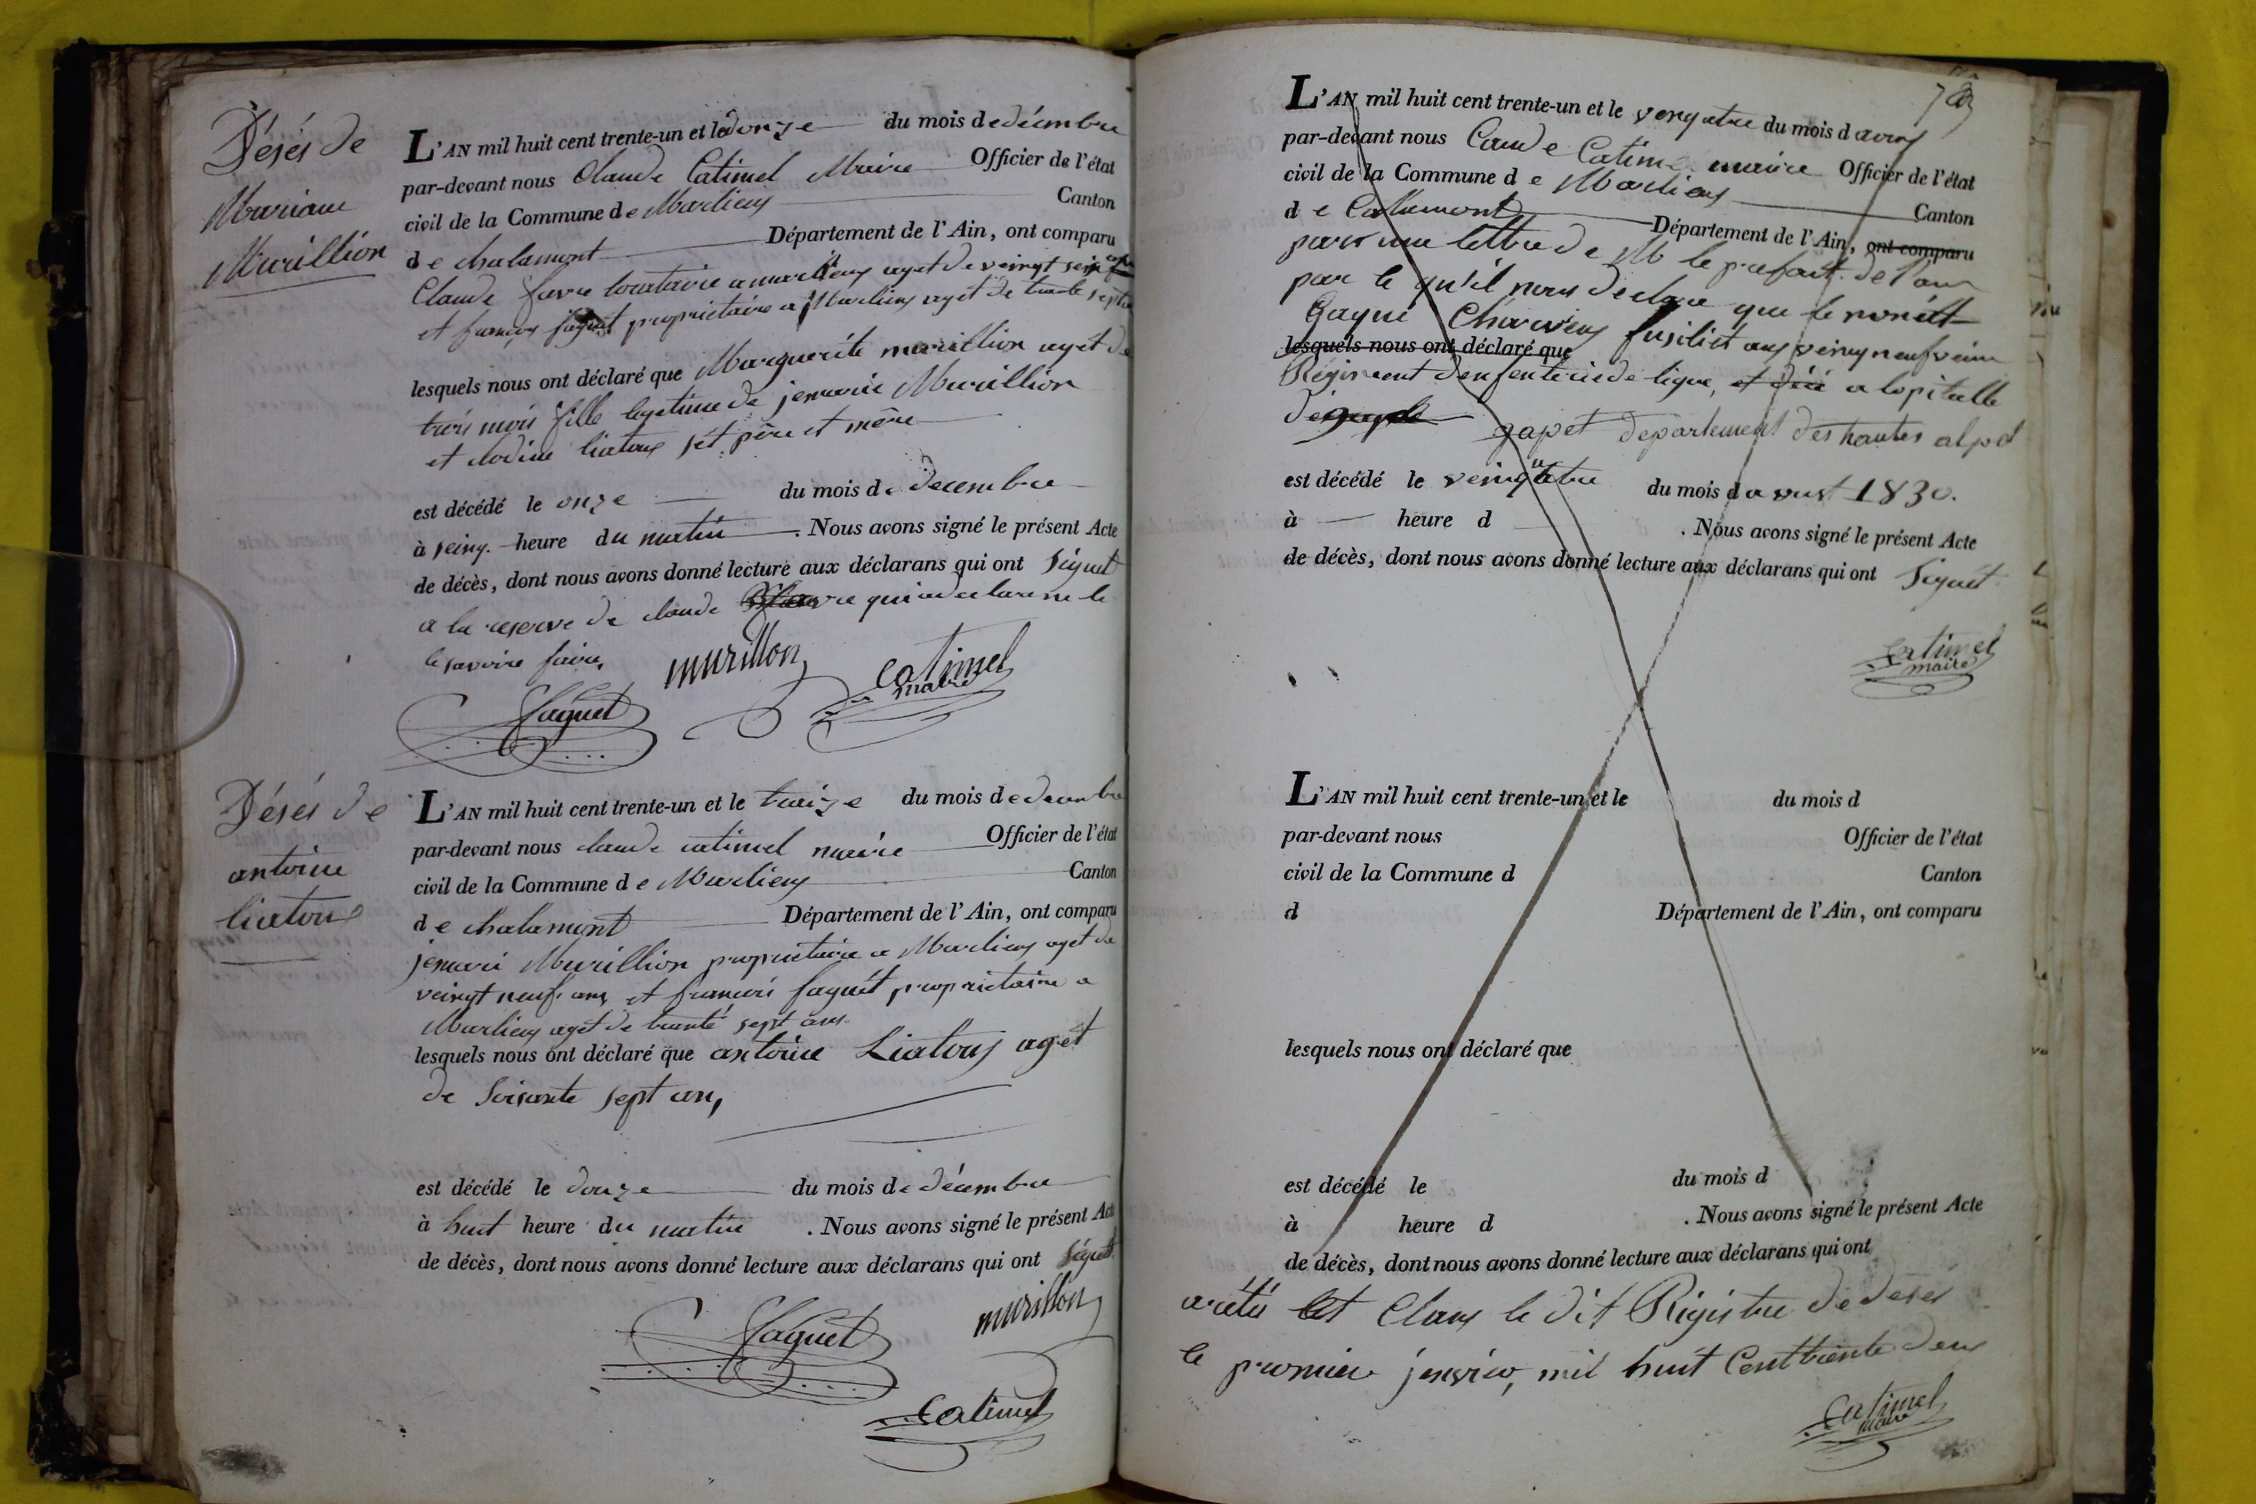 Désés de
Mariane
Murillion
L'AN mil huit cent trente-un et le donze du mois de décembre
par-devant nous Claude Catimel Maire Officier de l'état
civil de la Commune de Marlieux Canton
de chalamont Département de l'Ain, ont comparu
Claude favre locataire a marlieux aget de veingt
et françois faguet propriétaire a Marlieux aget de trante sept
lesquels nous ont déclaré que Marguerite murillion aget de
trois mois fille legetime de jenmarie Murillion
et clodine liatoux sét père et mère
est décédé le onze du mois de decembre
à seinq heure du matin. Nous avons signé le présent Acte
de décès, dont nous avons donné lecture aux déclarans qui ont signet
a la reserve de claude favre qui a declare ne le
le savoire faire,
murillon
Catimel
maire
faguet
Désés de
antoine
liatoux
L'AN mil huit cent trente-un et le traize du mois de decembre
par-devant nous claude catimel maire Officier de l'état
civil de la Commune de Marlieux Canton
de chalamont Département de l'Ain, ont comparu
jenmarie Murillion propriétaire a Marlieux aget de
veingt neuf ans et francois faguét propriétaire a
Marlieux aget de trante sept ans
lesquels nous ont déclaré que antoine Liatoux agét
de soisante sept ans,
est décédé le douze du mois de décembre
à huit heure du matin. Nous avons signé le présent Acte
de décès, dont nous avons donné lecture aux déclarans qui ont signet
murillon
faguet
Catimel
L'AN mil huit cent trente-un et le du mois d
par-devant nous Catimel maire Officier de l'état
civil de la Commune de Marlieux Canton
de Callamont Département de l'Ain, ont comparu
par une lettre de M le prefait de l'ain
par le qu'il nous déclare que le
fusiliét aux veingneufveime
lesquels nous ont déclaré que
Régiment d'enfenterie de ligne, a lopitalle
de gapet departement des hautes alpes
est décédé le du mois d avust 1830.
à heure d. Nous avons signé le présent Acte
de décès, dont nous avons donné lecture aux déclarans qui ont signet
Catimel
maire
L'AN mil huit cent trente-un et le du mois d
par-devant nous Officier de l'état
civil de la Commune d Canton
d Département de l'Ain, ont comparu
lesquels nous ont déclaré que
est décédé le du mois d
à heure d. Nous avons signé le présent Acte
de décès, dont nous avons donné lecture aux déclarans qui ont
arété et Claus le dit Régistre de désés
le promier jenvier, mil huit Cent trente deux
Catimel
maire